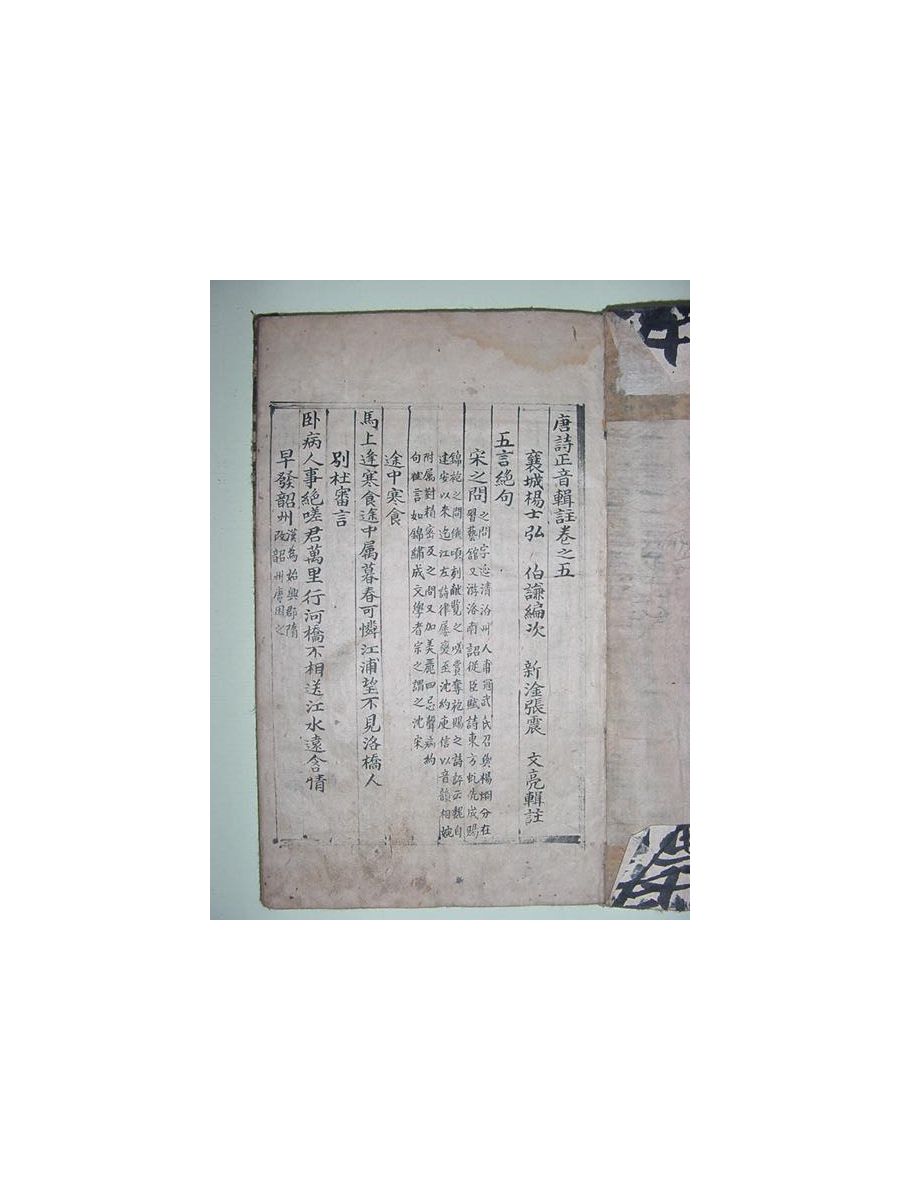 唐詩正音輯註卷之五
襄城楊士弘 伯謙編次 新淦張震 文亮輯註
五言絕句
宋之問 之問字延清汾州人甫冠武氏召與楊烱分在
習藝館又游洛南詔從臣賦詩東方虬先成賜
錦袍之問俄頃刻獻覽之嗟賞奪袍賜之詩評云魏自
建安以來迄江左詩律屢變至沈約庾信以音韻相婉
附屬對精密及之問又加美麗回忌聲病約
句准言如錦繡成文學者宗之謂之沈宋
途中寒食
馬上逢寒食途中属暮春可憐江浦望不見洛橋人
別杜審言
卧病人事絕嗟君萬里行河橋不相送江水遠含情
早發韶州 漢為始興郡隋
改韶州唐因之